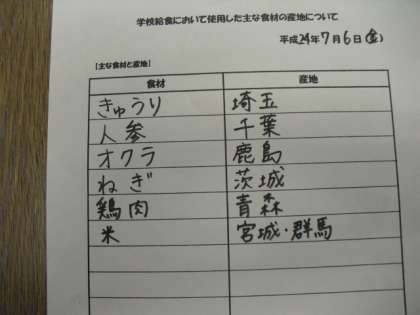 学校給食において使用した主な食材の産地について
平成24年7月6日(金)
[主な食材と産地]
食材 産地
きゅうり 埼玉
人参 千葉
オクラ 鹿島
ねぎ 茨城
鶏肉 青森
米 宮城・群馬